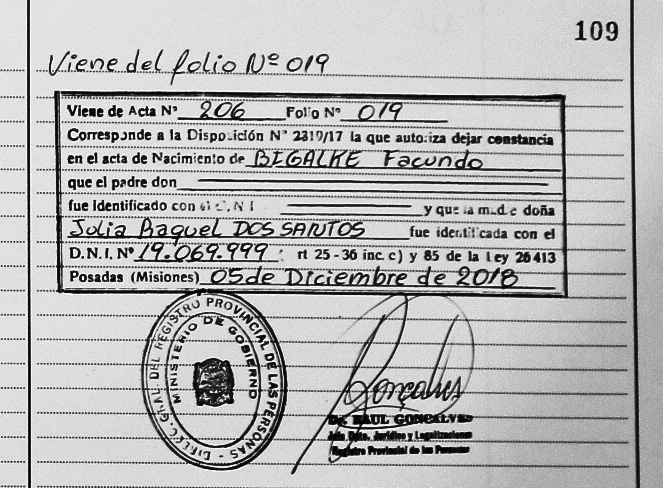 109
Viene del folio Nº 019
Viene de Acta Nº 206 Folio Nº 019
Corresponde a la Disposición Nº 2319/17 la que autoriza dejar constancia
en el acta de Nacimiento de BIGALKE Facundo
que el padre don
fue identificado con el D.N.I. y que la madre doña
Julia Raquel DOS SANTOS fue identificada con el
D.N.I. Nº 19.069.999 rt 25 - 36 inc. c) y 85 de la Ley 26413
Posadas (Misiones) 05 de Diciembre de 2018
DIREC. GRAL. DEL REGISTRO PROVINCIAL DE LAS PERSONAS -
MINISTERIO DE GOBIERNO
Gonçalves
Dr. RAUL GONCALVES
Jefe Dpto. Jurídico y Legalizaciones
Registro Provincial de las Personas